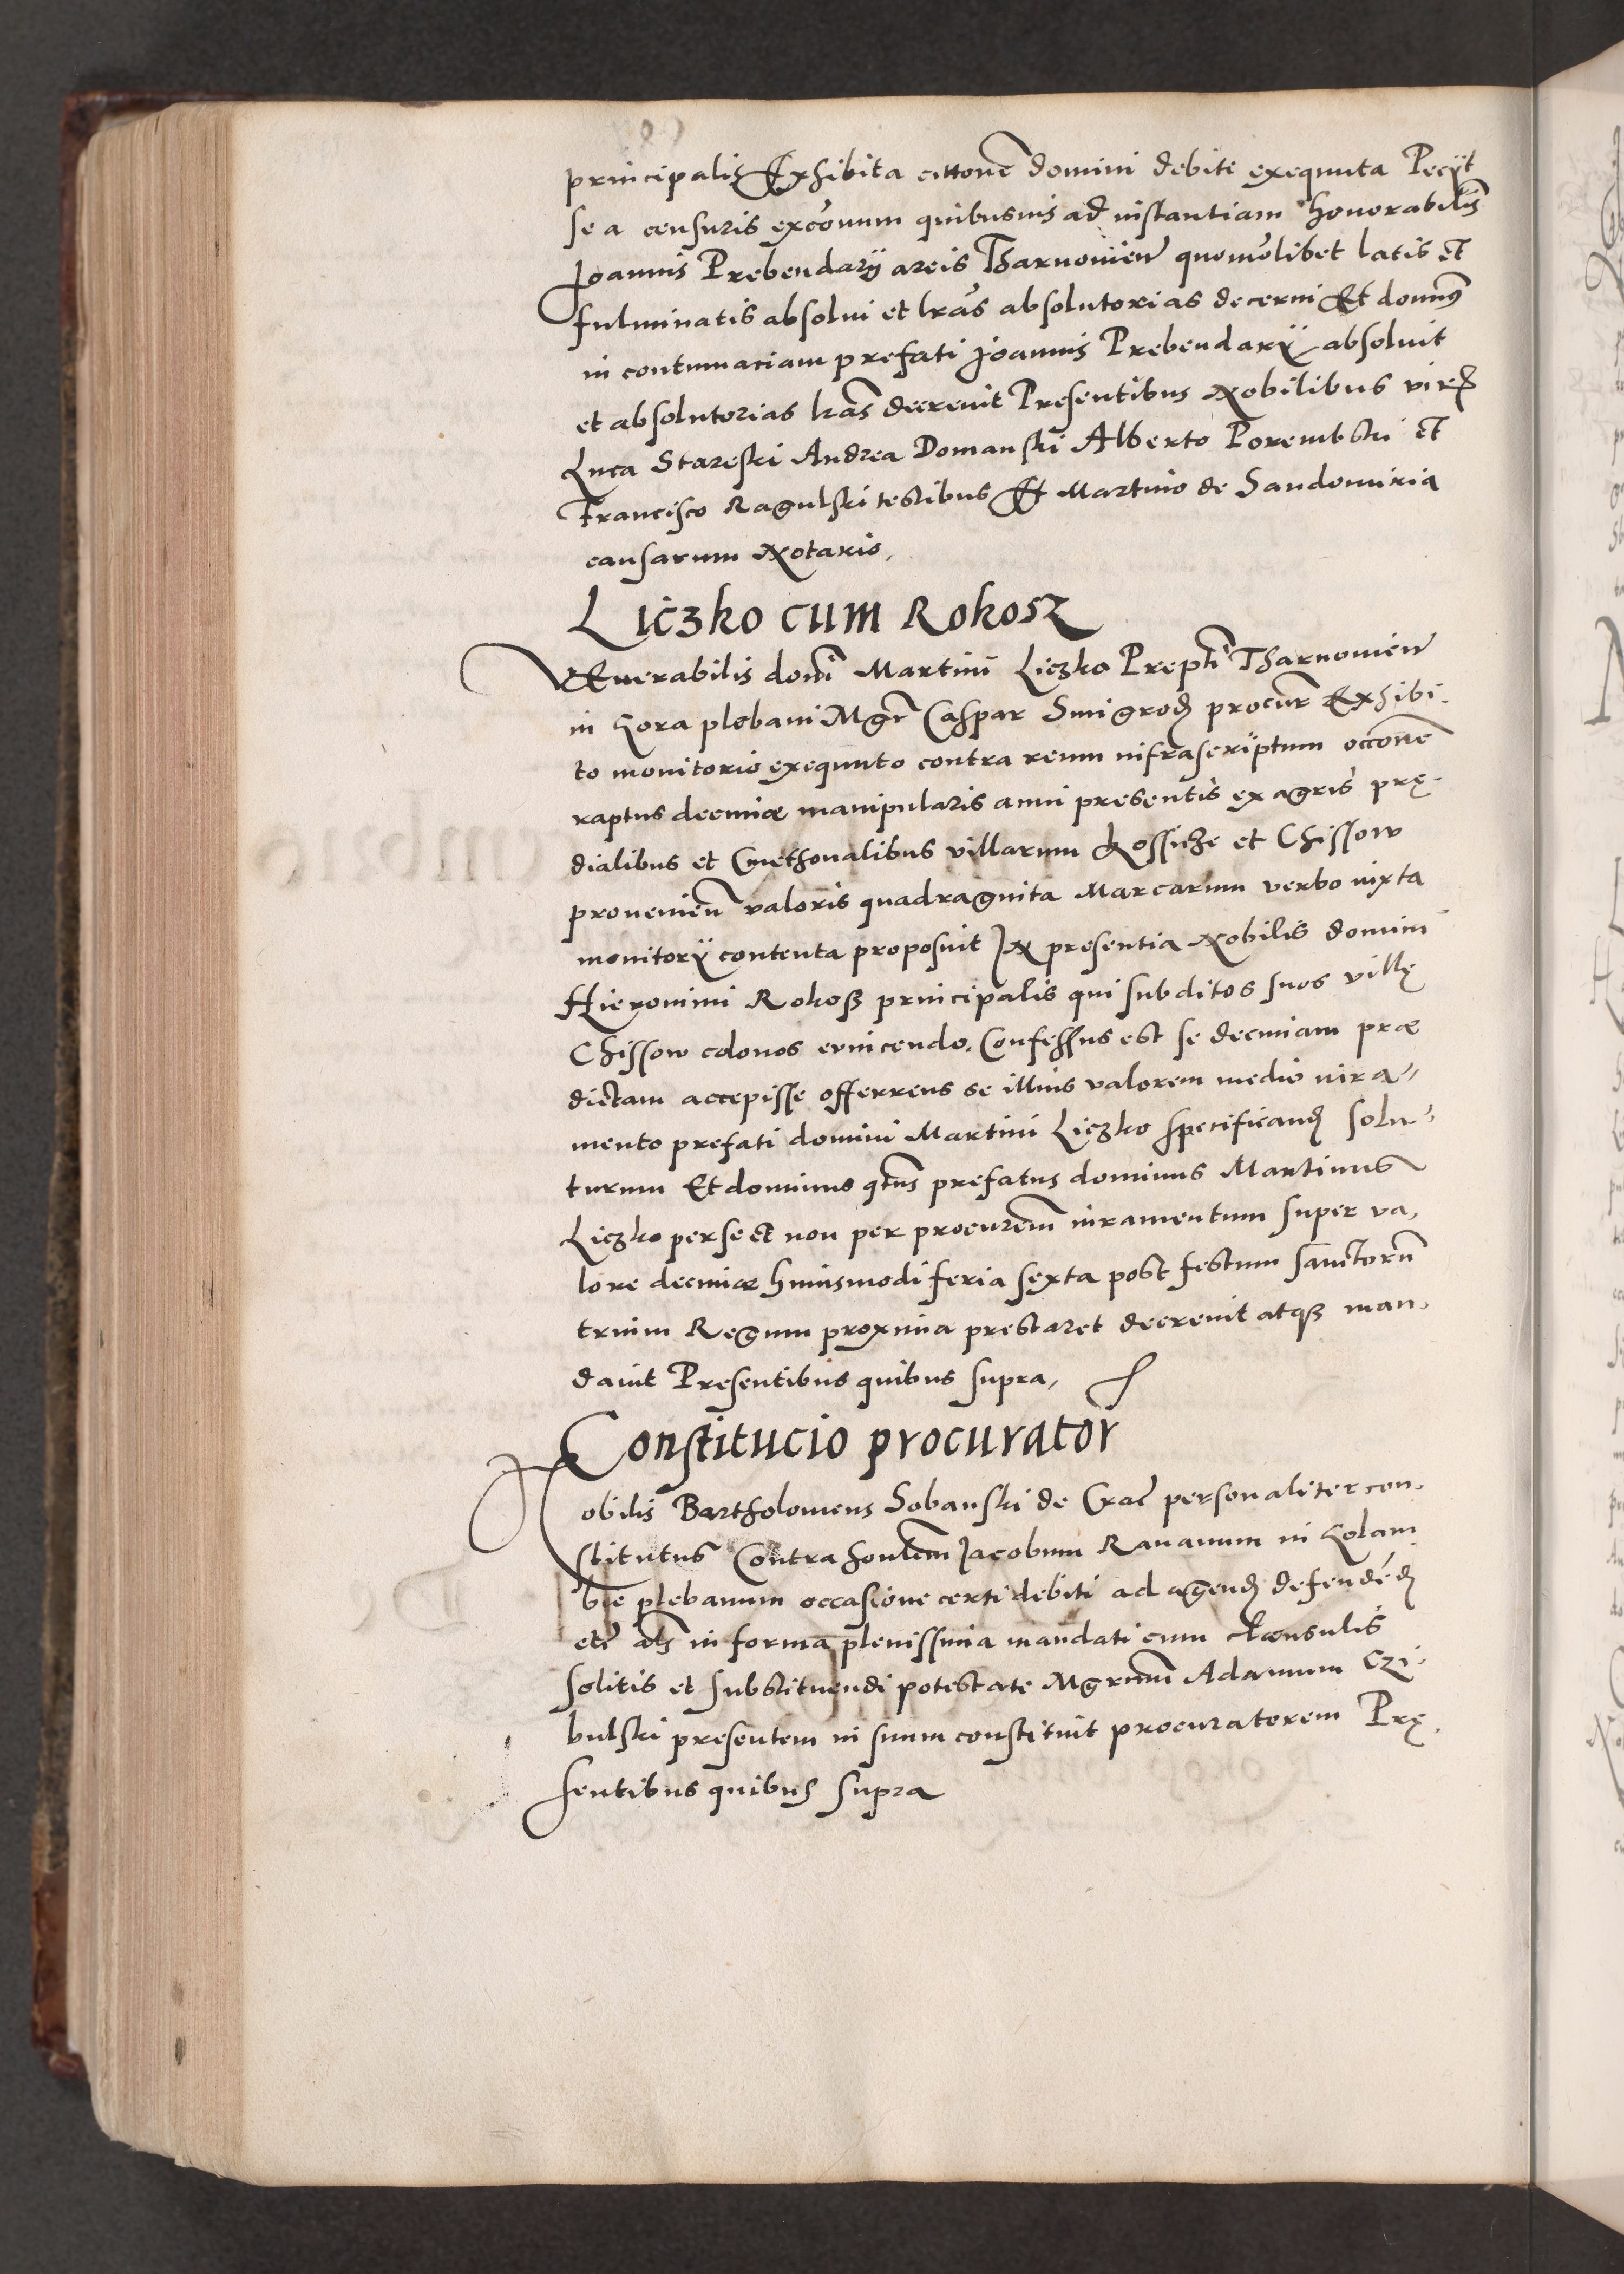 principalis Exhibita cittone domini debite exequuta Pecijt
se a censuris exconum quibusvis ad instantiam honorabilis
Joannis Prebendarij arcis Tharnovien quomolibet latis et
fulminatis absolvi et lras absolutorias decerni Et domnus
in contumaciam prefati Joannis Prebendarij absolvit
et absolutorias lras decrevit Presentibus Nobilibus viris
Luca Stareski Andrea Domanski Alberto Porembski et
Francisco Ragulski testibus Et Martino de Sandomiria
causarum Notario,
Liczko cum Rokosz
Venerabilis domi Martini Liczko Prepti Tharnovien
in Gora plebani Mgr Caspar Smigrod procur Exhibi-
to monitorio exequuto contra reum infrascriptum occone
raptus decimæ manipularis anni presentis ex agris prę-
dialibus et Cmethonalibus villarum et Chissow
provenien valoris quadraginta Marcarum verbo iuxta
monitorij contenta proposuit In presentia Nobilis domini
Hieronimi Rokosz principalis qui subditos suos villę
Chissow colonos evincendo. Confessus est se decimam præ
dictam accepisse offerrens se illius valorem medio iura-
mento prefati domini Martini Liczko specificand solu-
turum Et dominus qtus prefatus dominus Martinus
Liczko per se et non per procurem iuramentum super va-
lore decimæ huiusmodi feria sexta post festum sanctoru
trium Regum proxima prestaret decrevit atque man-
davit Presentibus quibus supra,
Constitucio procurator
Nobilis Bartholomeus Sobanski de Crac personaliter con-
stitutus Contra honlem Jacobum Ravanum in Golam
bie plebanum occasione certi debiti ad agend defended
etc als in forma plenissima mandati cum clausulis
solitis et substituendi potestate Mgrum Adamum Czi-
bulski presentem in suum constituit procuratorem Prę-
sentibus quibus supra